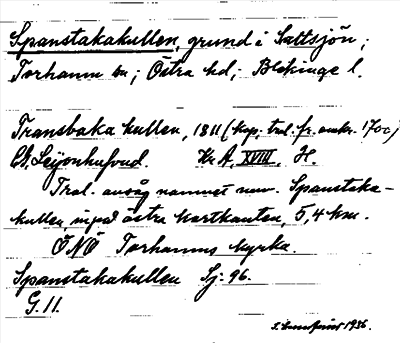 Spanstakakullen, grund i Sattsjön;
Torhamn sn; Östra hd; Blekinge l.
Transbaka kullen, 1811 (kop. trol. fr. omkr. 1700)
C. Leijonhufvud. Kr. A, XVIII, H.
Trol. avsåg namnet nuv. Spanstaka-
kullen, mpå östra kartkanten, 5,4 km.
ÖNÖ Torhamns kyrka.
Spanstakakullen Sj: 96.
G. 11.
1936.